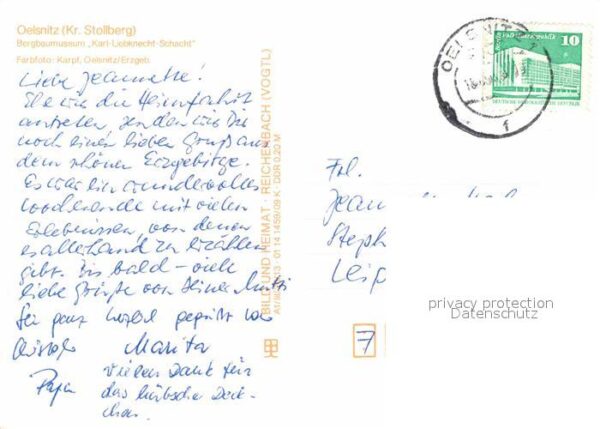 Oelsnitz (Kr. Stollberg)
Bergbaumuseum „Karl-Liebknecht-Schacht"
Farbfoto: Karpf, Oelsnitz/Erzgeb.
Liebe Jeannette!
Ehe wir die Heimfahrt
antreten, senden wir Dir
noch einen lieben Gruß aus
dem schönen Erzgebirge.
Es war ein wundervolles
Wochenende mit vielen
Erlebnissen, von denen
es allerhand zu erzählen
gibt. Bis bald – viele
liebe Grüße von Deiner Mutti
Sei ganz herzlich gegrüßt von
Marita
Papa
vielen Dank für
das hübsche Deck-
chen.
BILD UND HEIMAT · REICHENBACH (VOGTL)
01 14 1459/09 K · DDR 0,20 M
OELSNITZ 1
Berlin, Palast der Republik
10
DEUTSCHE DEMOKRATISCHE REPUBLIK
f
Frl.
Jean
Steph
Leip
privacy protection
Datenschutz
7